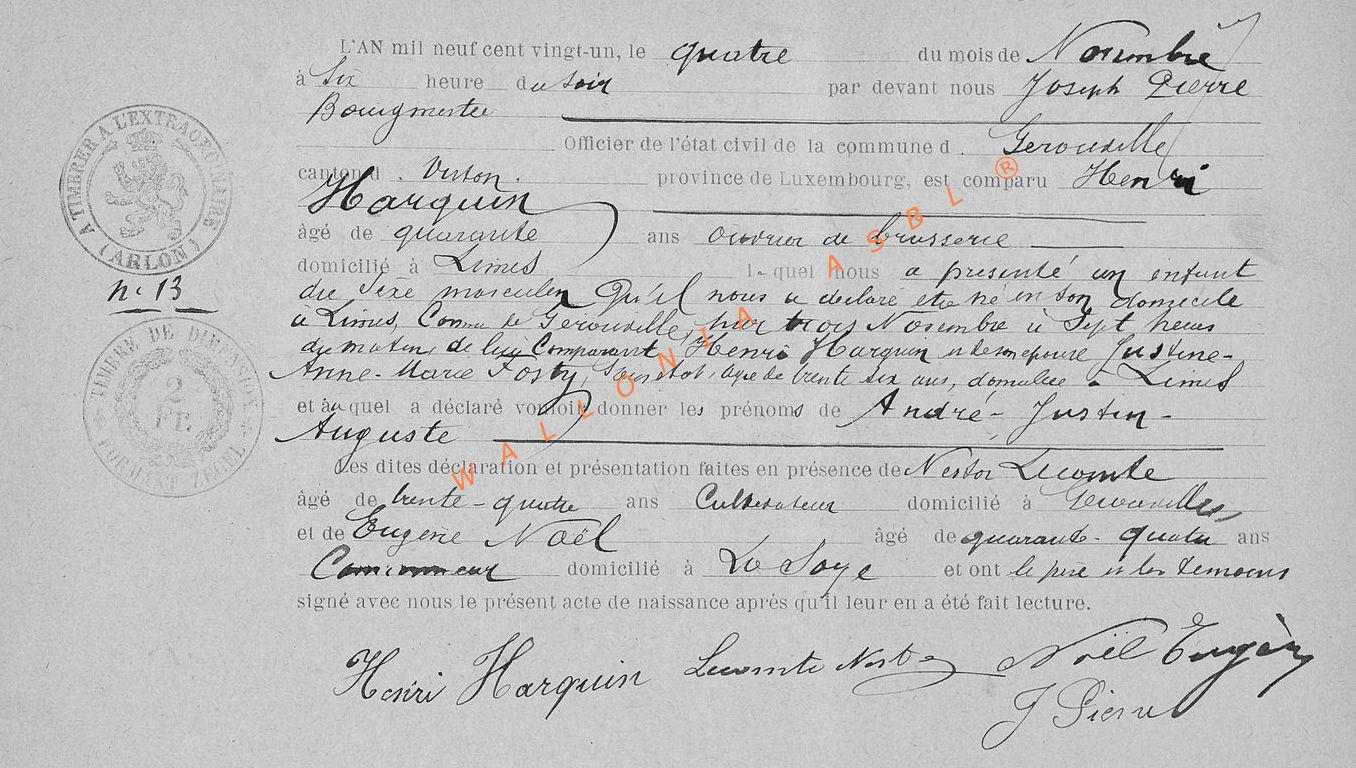 L'AN mil neuf cent vingt-un, le quatre du mois de Novembre
à Six heure du soir par devant nous Joseph Pierre
Bourgmestre
Officier de l'état civil de la commune d. Gerouville
canton d. Virton. province de Luxembourg, est comparu Henri
Harquin
âgé de quarante ans ouvrier de brasserie
domicilié à Limes lequel nous a présenté un enfant
du Sexe masculin Qu'il nous a déclaré etre né en son domicile
à Limes, Commune de Gerouville, hier trois Novembre à Sept heures
du matin, de lui Comparant Henri Harquin et de son épouse Justine-
Anne-Marie Fosty, Sans état, âgée de trente six ans, domiciliée à Limes
et auquel a déclaré vouloir donner les prénoms de André-Justin-
Auguste
Les dites déclaration et présentation faites en présence de Nestor Lecomte
âgé de trente-quatre ans Cultivateur domicilié à Gerouville
et de Eugène Noël âgé de quarante-quatre ans
domicilié à La Soye et ont le père et les témoins
signé avec nous le présent acte de naissance après qu'il leur en a été fait lecture.
Henri Harquin Lecomte Nestor Noël Eugène
J Pierre
A TIMBRER A L'EXTRAORDINAIRE
(ARLON)
n° 13
TIMBRE DE DIMENSION
2
FR.
FORMAAT ZEGEL
WALLONIA ASBL ®